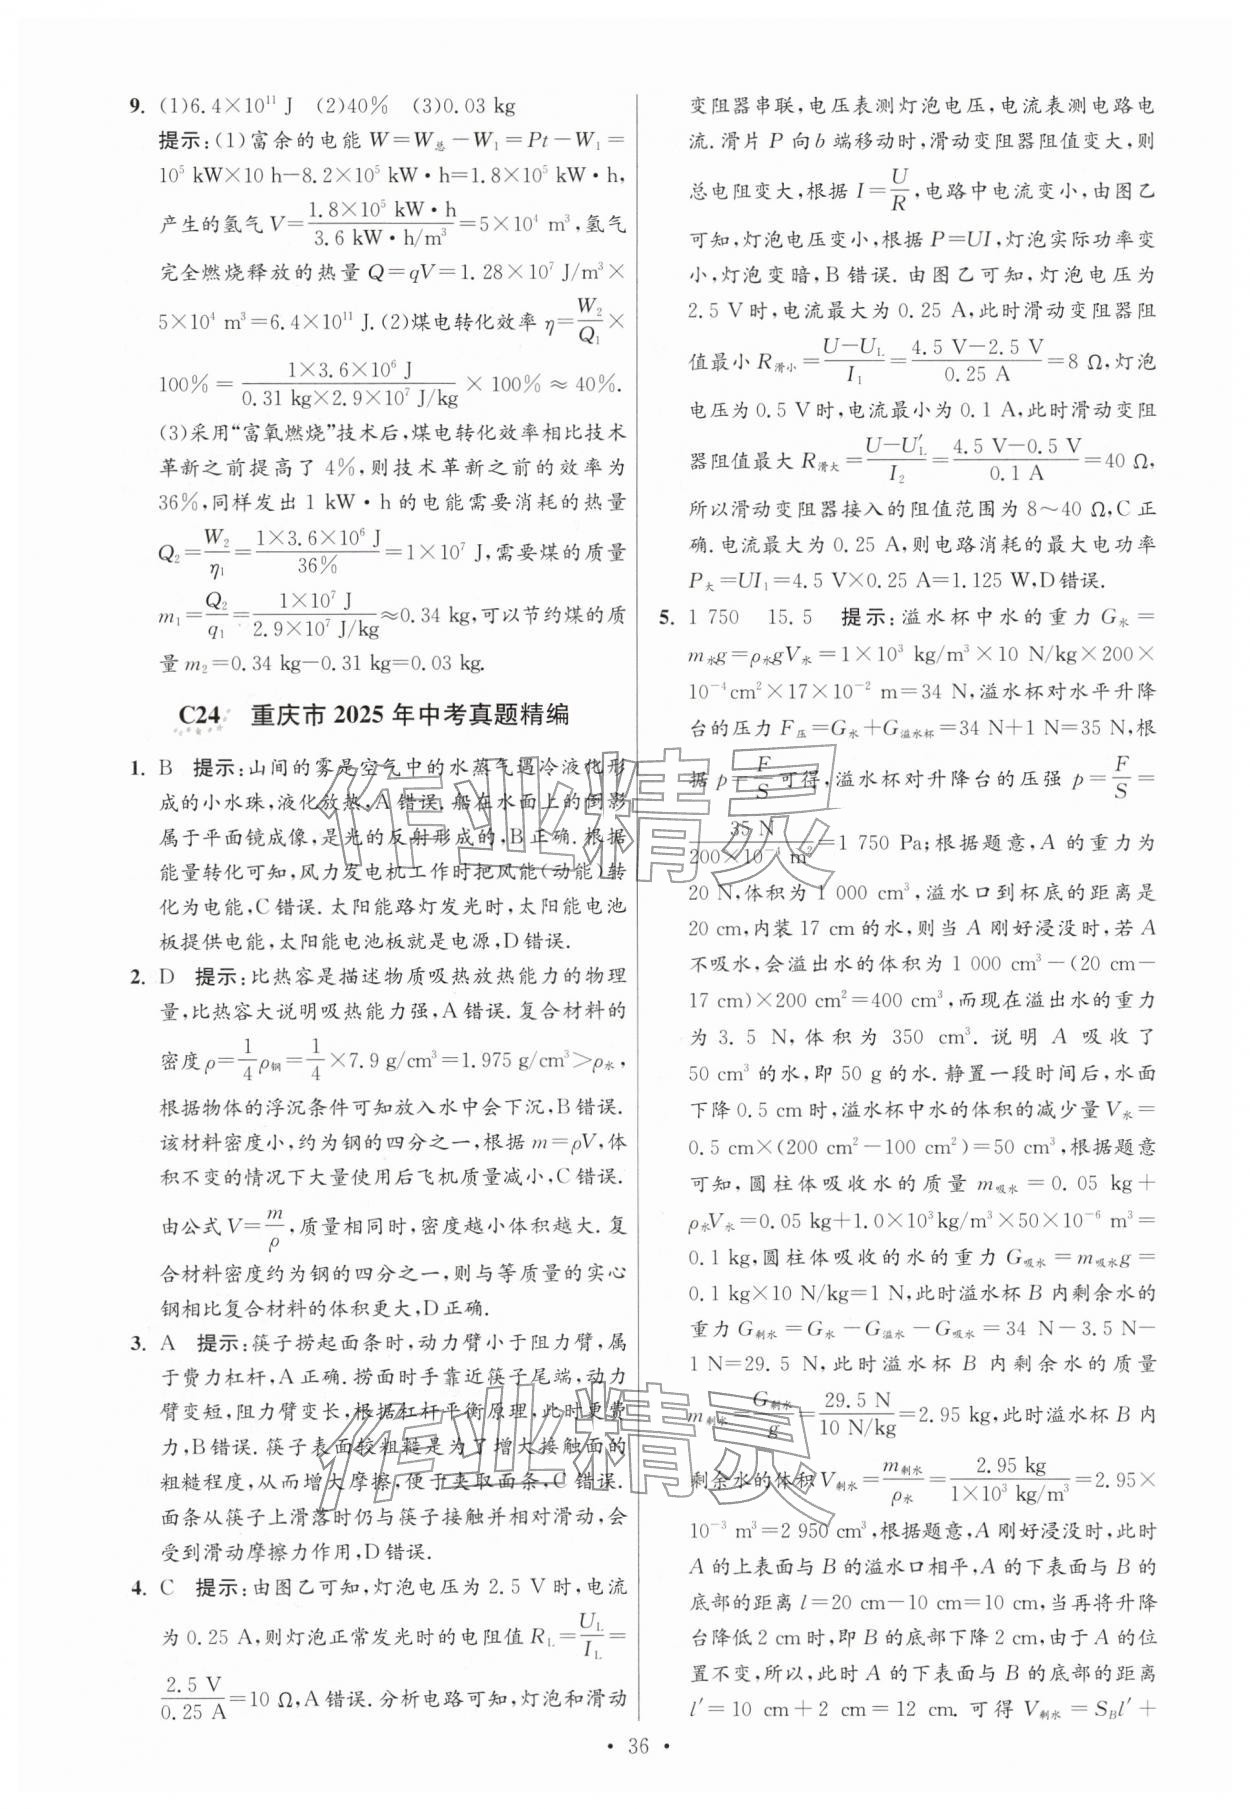 9. (1)6.4×10¹¹ J　(2)40%　(3)0.03 kg
提示:(1)富余的电能 W=W总-W₁=Pt-W₁=
10⁵ kW×10 h-8.2×10⁵ kW·h=1.8×10⁵ kW·h,
产生的氢气 V=(1.8×10⁵ kW·h)/(3.6 kW·h/m³)=5×10⁴ m³,氢气
完全燃烧释放的热量 Q=qV=1.28×10⁷ J/m³×
5×10⁴ m³=6.4×10¹¹ J.(2)煤电转化效率 η=W₂/Q₁×
100%=(1×3.6×10⁶ J)/(0.31 kg×2.9×10⁷ J/kg)×100%≈40%.
(3)采用“富氧燃烧”技术后,煤电转化效率相比技术
革新之前提高了 4%,则技术革新之前的效率为
36%,同样发出 1 kW·h的电能需要消耗的热量
Q₂=W₂/η₁=(1×3.6×10⁶ J)/36%=1×10⁷ J,需要煤的质量
m₁=Q₂/q₁=(1×10⁷ J)/(2.9×10⁷ J/kg)≈0.34 kg,可以节约煤的质
量 m₂=0.34 kg-0.31 kg=0.03 kg.
C24　重庆市 2025 年中考真题精编
1. B　提示:山间的雾是空气中的水蒸气遇冷液化形
成的小水珠,液化放热,A 错误.船在水面上的倒影
属于平面镜成像,是光的反射形成的,B正确.根据
能量转化可知,风力发电机工作时把风能(动能)转
化为电能,C错误.太阳能路灯发光时,太阳能电池
板提供电能,太阳能电池板就是电源,D错误.
2. D　提示:比热容是描述物质吸热放热能力的物理
量,比热容大说明吸热能力强,A错误.复合材料的
密度 ρ=1/4ρ钢=1/4×7.9 g/cm³=1.975 g/cm³>ρ水,
根据物体的浮沉条件可知放入水中会下沉,B错误.
该材料密度小,约为钢的四分之一,根据 m=ρV,体
积不变的情况下大量使用后飞机质量减小,C错误.
由公式 V=m/ρ,质量相同时,密度越小体积越大.复
合材料密度约为钢的四分之一,则与等质量的实心
钢相比复合材料的体积更大,D正确.
3. A　提示:筷子捞起面条时,动力臂小于阻力臂,属
于费力杠杆,A正确.捞面时手靠近筷子尾端,动力
臂变短,阻力臂变长,根据杠杆平衡原理,此时更费
力,B错误.筷子表面较粗糙是为了增大接触面的
粗糙程度,从而增大摩擦,便于夹取面条,C错误.
面条从筷子上滑落时仍与筷子接触并相对滑动,会
受到滑动摩擦力作用,D错误.
4. C　提示:由图乙可知,灯泡电压为 2.5 V时,电流
为 0.25 A,则灯泡正常发光时的电阻值 R_L=U_L/I_L=
2.5 V/0.25 A=10 Ω,A错误.分析电路可知,灯泡和滑动
变阻器串联,电压表测灯泡电压,电流表测电路电
流.滑片 P 向 b 端移动时,滑动变阻器阻值变大,则
总电阻变大,根据 I=U/R,电路中电流变小,由图乙
可知,灯泡电压变小,根据 P=UI,灯泡实际功率变
小,灯泡变暗,B错误.由图乙可知,灯泡电压为
2.5 V时,电流最大为 0.25 A,此时滑动变阻器阻
值最小 R滑小=(U-U_L)/I₁=(4.5 V-2.5 V)/0.25 A=8 Ω,灯泡
电压为 0.5 V时,电流最小为 0.1 A,此时滑动变阻
器阻值最大 R滑大=(U-U′_L)/I₂=(4.5 V-0.5 V)/0.1 A=40 Ω,
所以滑动变阻器接入的阻值范围为 8~40 Ω,C正
确.电流最大为 0.25 A,则电路消耗的最大电功率
P大=UI₁=4.5 V×0.25 A=1.125 W,D错误.
5. 1 750　15.5　提示:溢水杯中水的重力 G水=
m水g=ρ水gV水=1×10³ kg/m³×10 N/kg×200×
10⁻⁴cm²×17×10⁻² m=34 N,溢水杯对水平升降
台的压力 F压=G水+G溢水杯=34 N+1 N=35 N,根
据 p=F/S可得,溢水杯对升降台的压强 p=F/S=
35 N/(200×10⁻⁴ m²)=1 750 Pa;根据题意,A 的重力为
20 N,体积为 1 000 cm³,溢水口到杯底的距离是
20 cm,内装 17 cm的水,则当 A 刚好浸没时,若 A
不吸水,会溢出水的体积为 1 000 cm³-(20 cm-
17 cm)×200 cm²=400 cm³,而现在溢出水的重力
为 3.5 N,体积为 350 cm³.说明 A 吸收了
50 cm³ 的水,即 50 g 的水.静置一段时间后,水面
下降 0.5 cm时,溢水杯中水的体积的减少量 V水=
0.5 cm×(200 cm²-100 cm²)=50 cm³,根据题意
可知,圆柱体吸收水的质量 m吸水=0.05 kg+
ρ水V水=0.05 kg+1.0×10³kg/m³×50×10⁻⁶ m³=
0.1 kg,圆柱体吸收的水的重力 G吸水=m吸水g=
0.1 kg×10 N/kg=1 N,此时溢水杯 B内剩余水的
重力 G剩水=G水-G溢水-G吸水=34 N-3.5 N-
1 N=29.5 N,此时溢水杯 B 内剩余水的质量
m剩水=G剩水/g=29.5 N/(10 N/kg)=2.95 kg,此时溢水杯 B 内
剩余水的体积 V剩水=m剩水/ρ水=2.95 kg/(1×10³ kg/m³)=2.95×
10⁻³ m³=2 950 cm³,根据题意,A 刚好浸没时,此时
A 的上表面与 B 的溢水口相平,A 的下表面与 B 的
底部的距离 l=20 cm-10 cm=10 cm,当再将升降
台降低 2 cm时,即 B 的底部下降 2 cm,由于 A 的位
置不变,所以,此时 A 的下表面与 B 的底部的距离
l′=10 cm+2 cm=12 cm.可得 V剩水=S_Bl′+
·36·
作业精灵
作业精灵